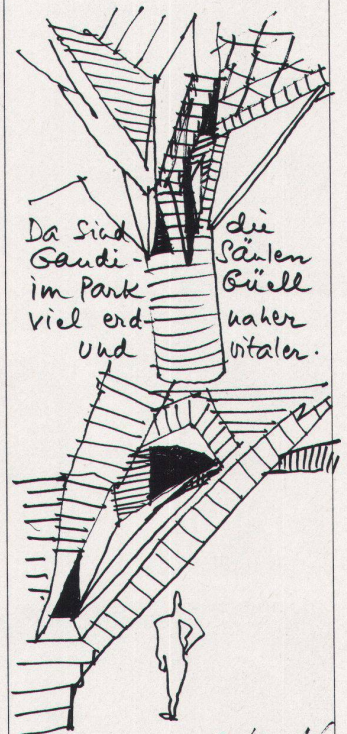 Da sind die
Gaudi- Säulen
im Park Güell
viel erd- naher
und vitaler.